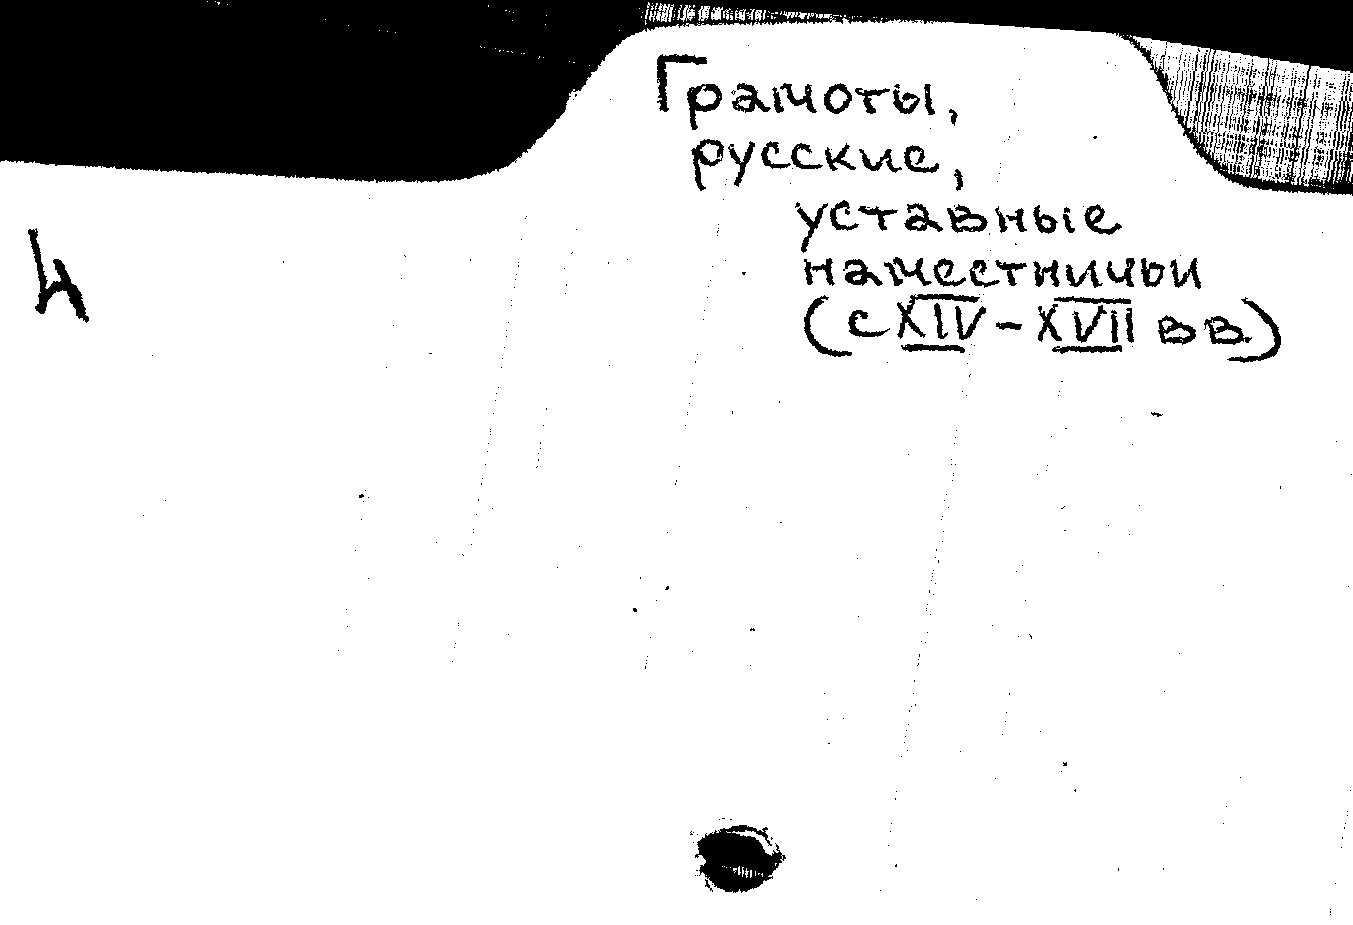 Грамоты,
русские,
уставные
наместничьи
(с XIV - XVII вв.)
4